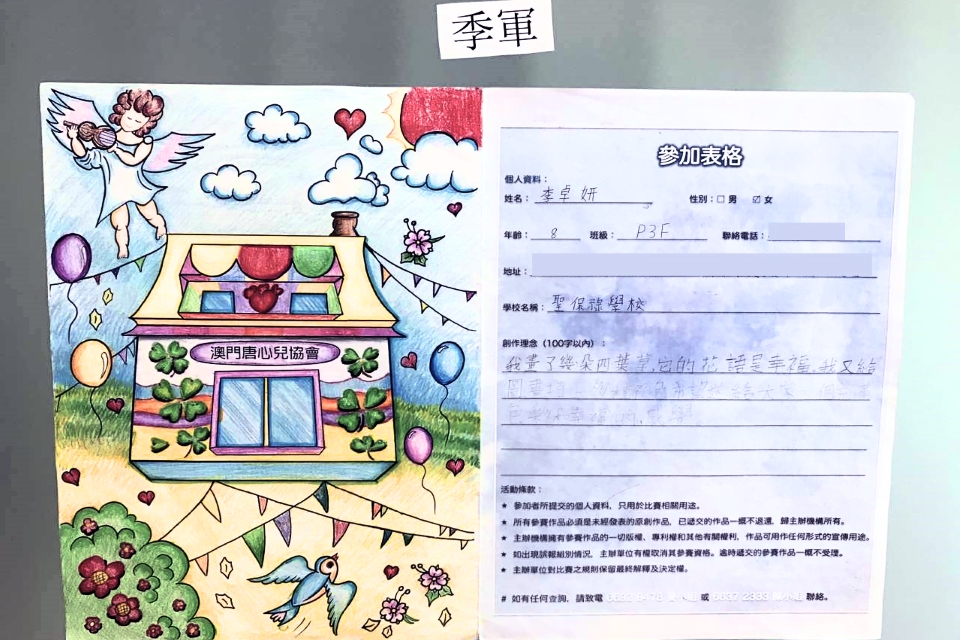 季軍
澳門唐心兒協會
參加表格
個人資料：
姓名： 李卓妍 性別：□ 男 ☑ 女
年齡： 8 班級： P3F 聯絡電話：
地址：
學校名稱： 聖保祿學校
創作理念（100字以內）：
我畫了幾朵四葉草,它的花語是幸福,我又給
活動條款：
★ 參加者所提交的個人資料，只用於比賽相關用途。
★ 所有參賽作品必須是未經發表的原創作品，已遞交的作品一概不退還，歸主辦機構所有。
★ 主辦機構擁有參賽作品的一切版權、專利權和其他有關權利，作品可用作任何形式的宣傳用途。
★ 如出現誤報組別情況，主辦單位有權取消其參賽資格。逾時遞交的參賽作品一概不受理。
★ 主辦單位對比賽之規則保留最終解釋及決定權。
# 如有任何查詢，請致電 或 聯絡。